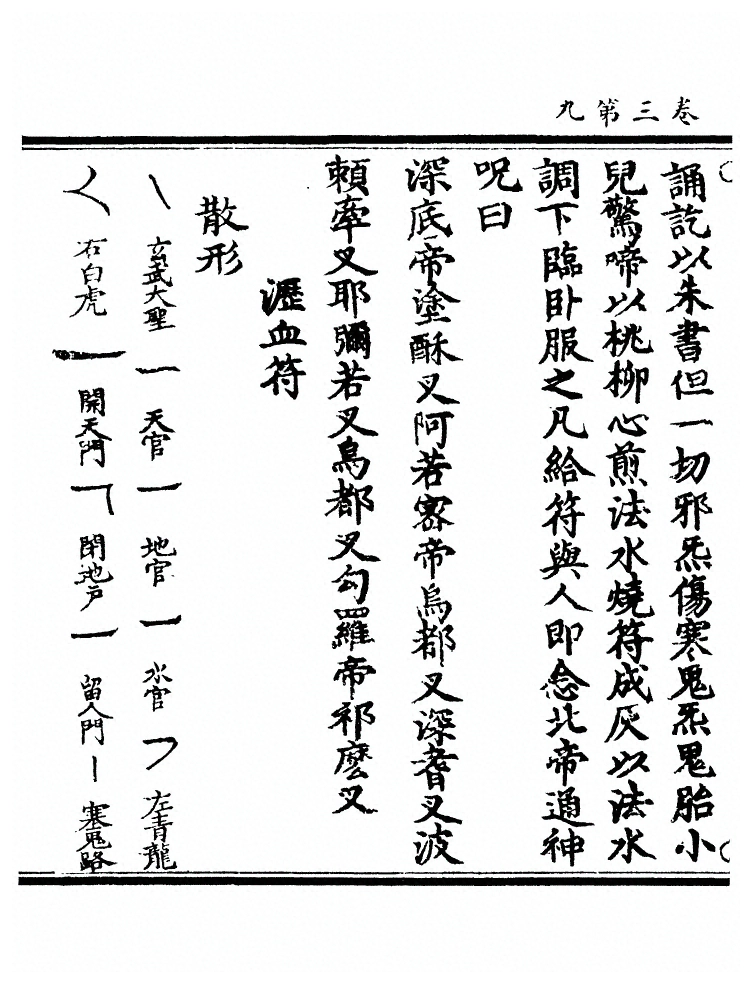 卷三第九
誦訖以朱書但一切邪炁傷寒鬼炁鬼胎小
兒驚啼以桃柳心煎法水燒符成灰以法水
調下臨卧服之凡給符與人即念北帝通神
呪曰
深底帝塗酥叉阿若密帝烏都叉深耆叉波
賴牽叉耶彌若叉烏都叉勾羅帝祁麼叉
瀝血符
散形
玄武大聖 天官 地官 水官 左青龍
右白虎 開天門 閉地戶 留人門 塞鬼路